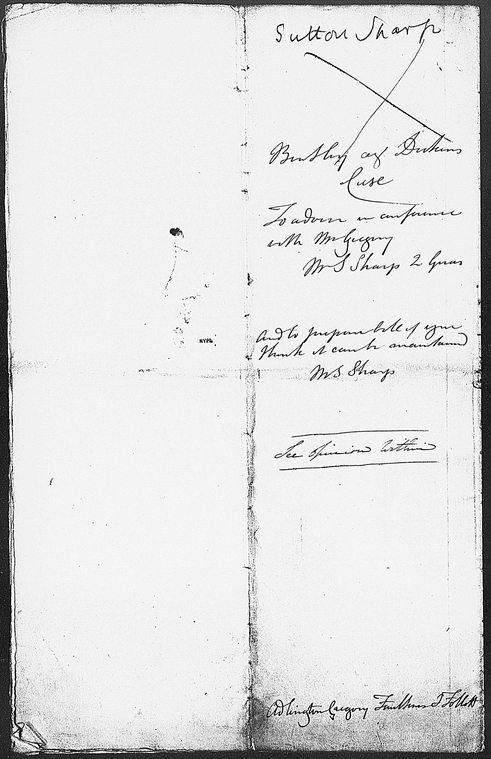 Sutton Sharp
Bentley agt Dickens
Case
To advise in conference
with Mr Gregory
Mr S Sharp 2 Guas
NYPL
And to prepare bill if you
think it can be maintained
Mr S Sharp
See opinion within
Adlington Gregory Faulkner & Follett